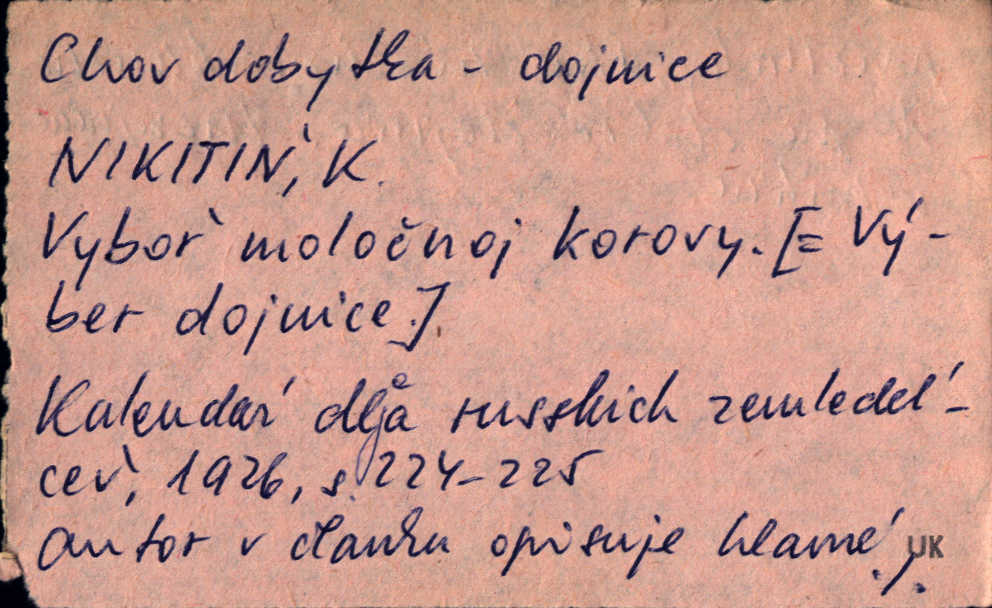 Chov dobytka - dojnice
NIKITIǸ, K.
Vybor̀ moločnoj korovy. [= Vý-
ber dojnice.]
Kalendaŕ dlja russkich zemledel'-
cev̀, 1926, s. 224-225
Autor v článku opisuje hlavné
UK